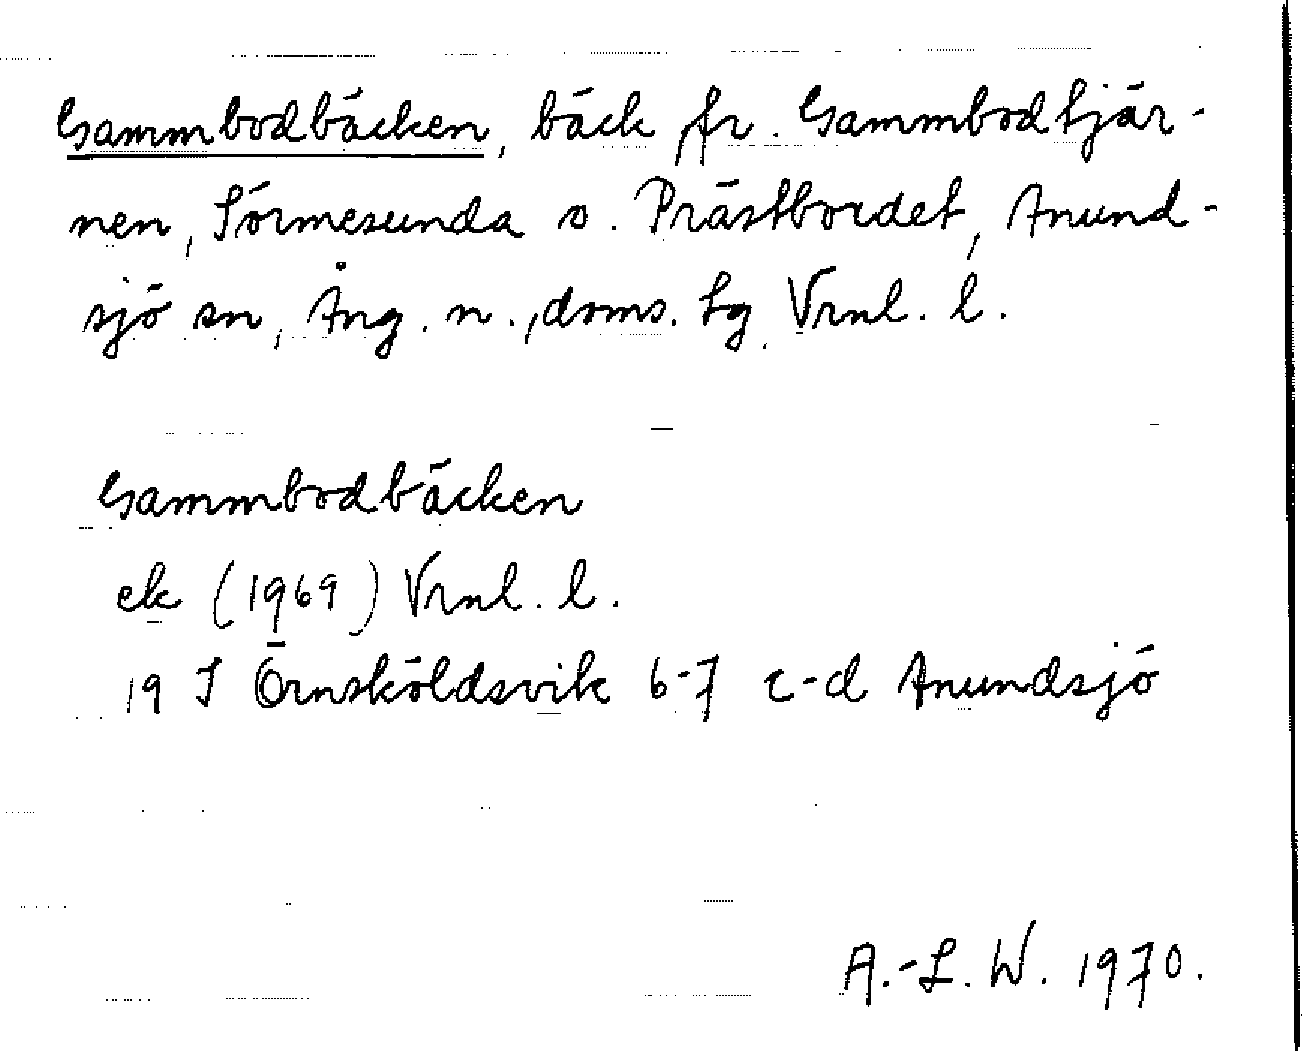 Gammbodbäcken, bäck fr. Gammbodtjär-
nen, Sörmesunda o. Prästbordet, Anund-
sjö sn, Ång. n., doms. tg Vrnl. l.
Gammbodbäcken
ek (1969) Vrnl. l.
19 J Örnsköldsvik 6-7 c-d Anundsjö
A.-L. W. 1970.